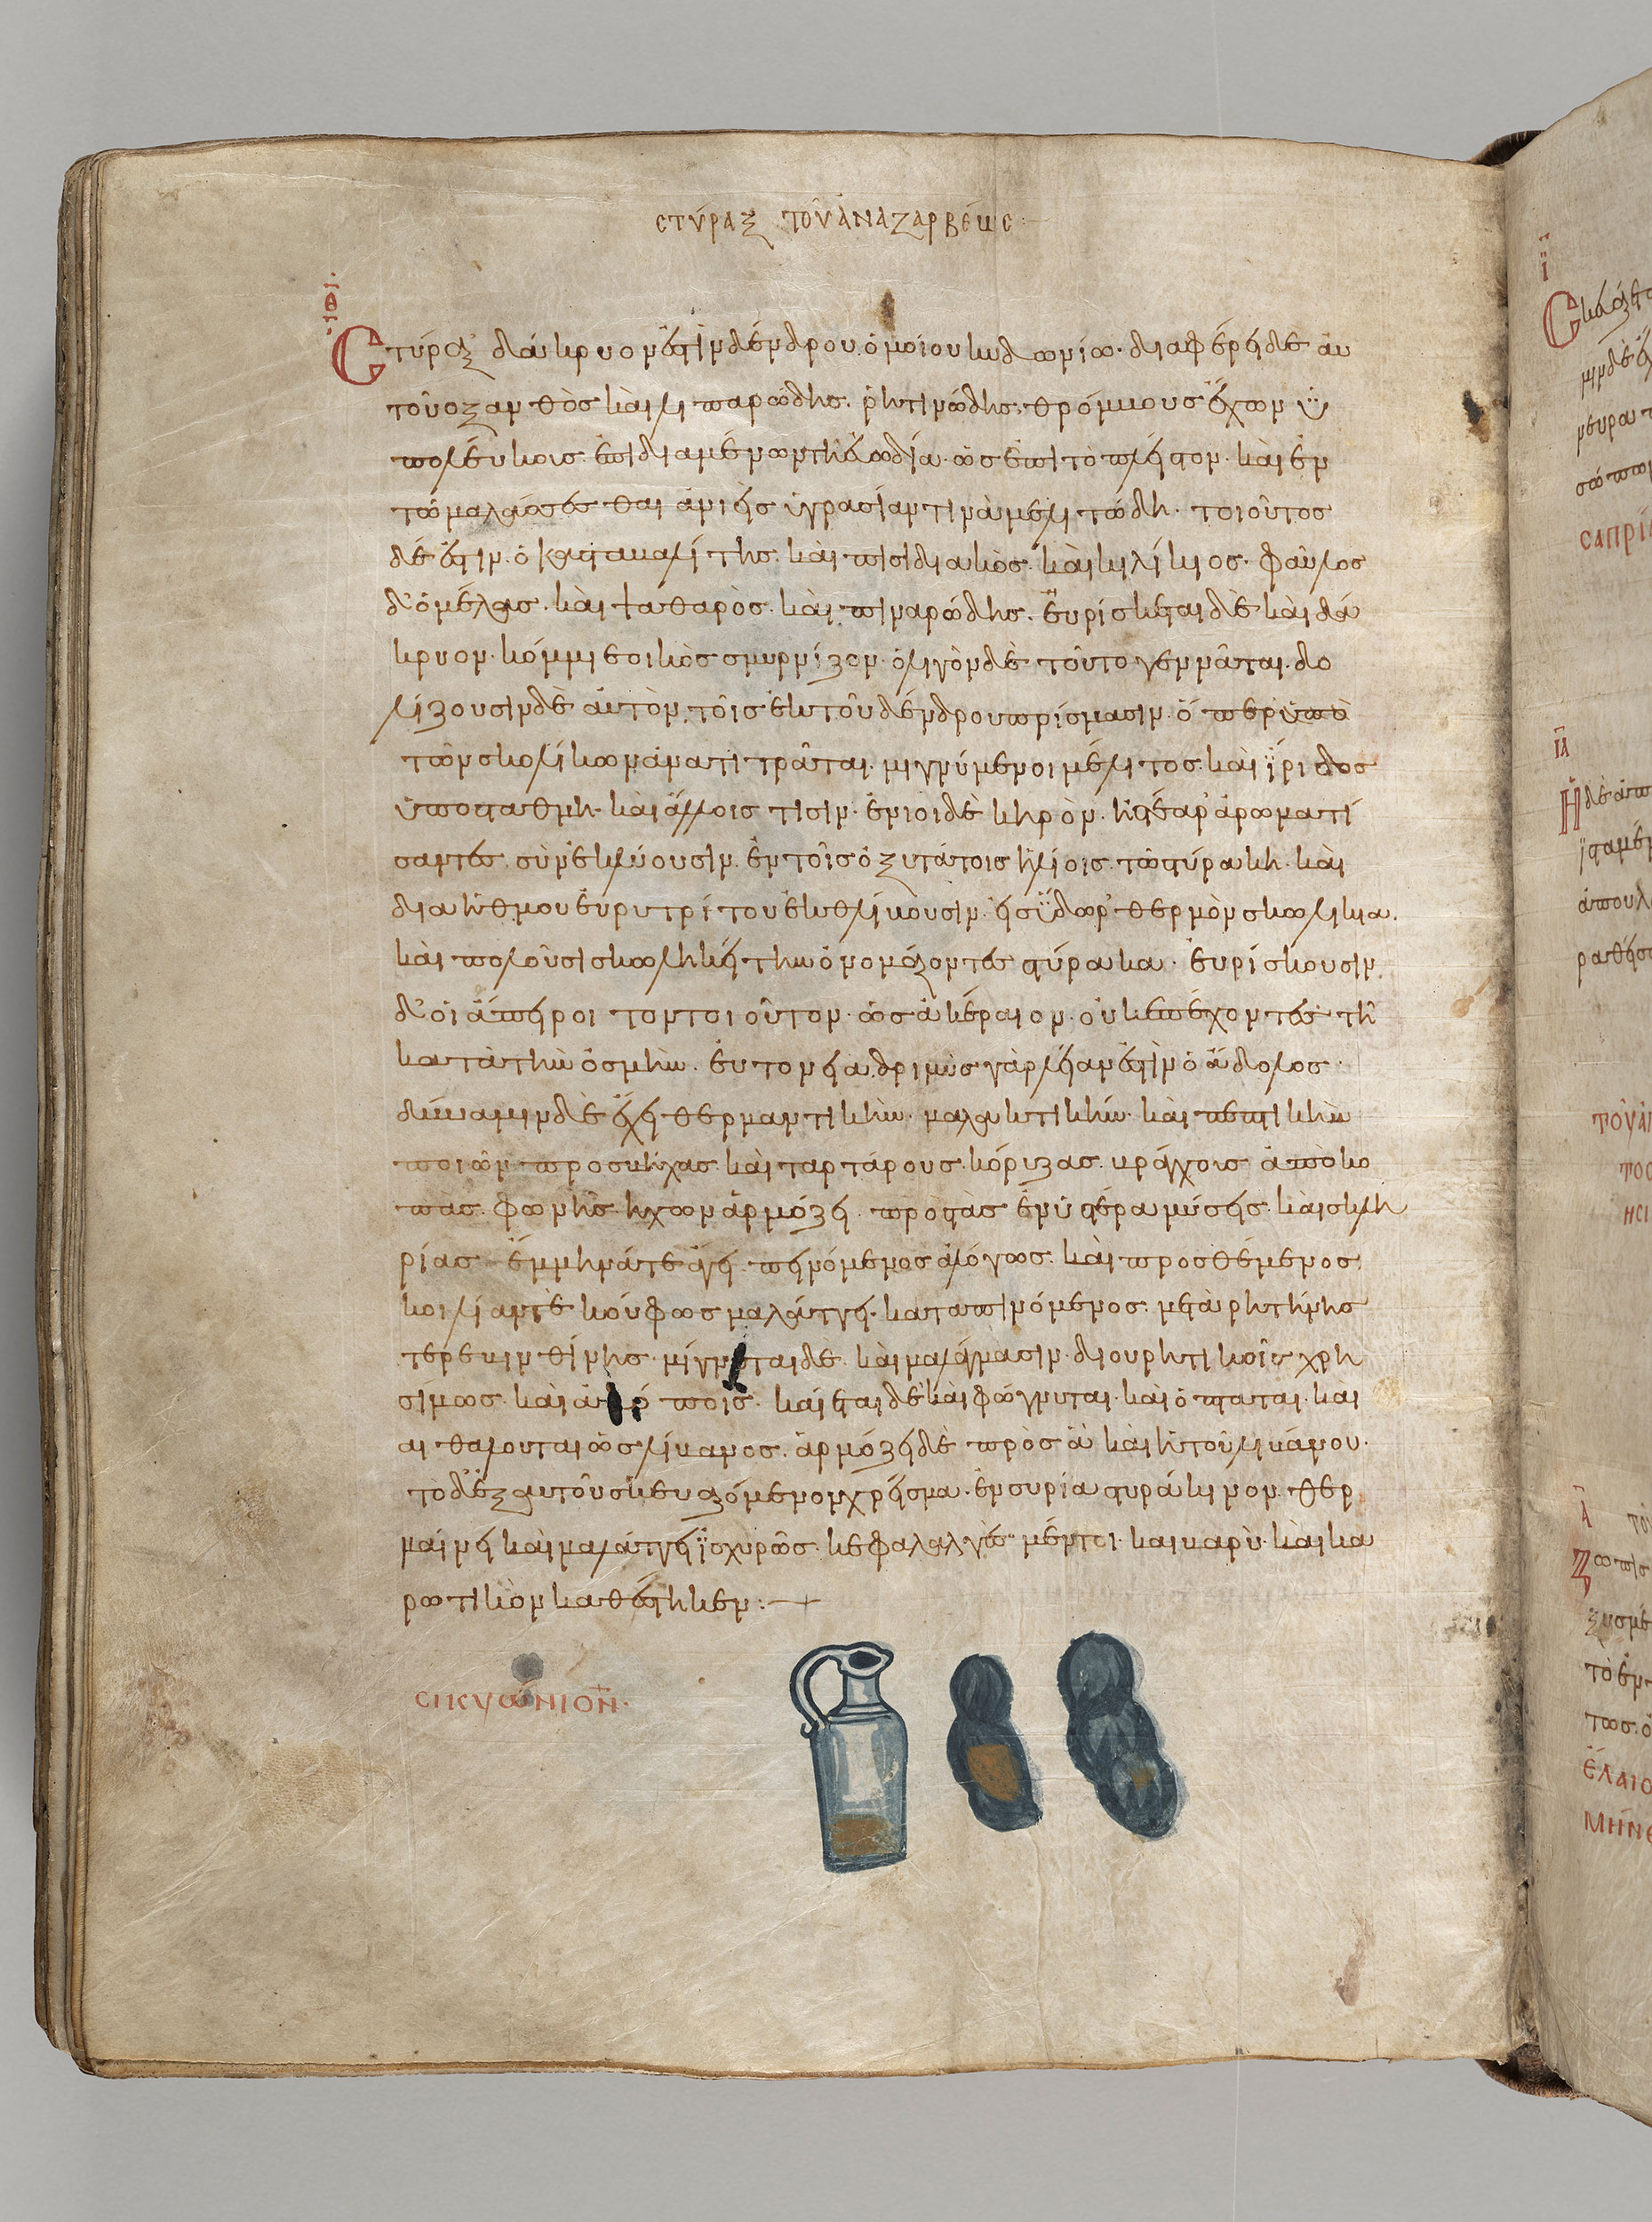 στύραξ τοῦ ἀναζαρβέως
Στύραξ δάκρυον ἐστὶν δένδρου ὁμοίου κυδωνίω· διαφέρει δὲ αυ
τοῦ ὁ ξανθὸς καὶ λιπαρώδης· ῥητινώδης· θρόμβους ἔχων ὑ
πολεύκους· ἐπιδιαμένων τῆ εὐωδία· ὡς ἐπὶ τὸ πλεῖστον· καὶ ἐν
τῶ μαλάσσεσθαι ἀνιεὶς ὑγρασίαν τινὰ μελιτώδη· τοιοῦτος
δέ ἐστιν· ὁ καταβαλίτης· καὶ πισιδιακὸς· καὶ κιλίκιος· φαῦλος
δ' ὁ μέλας· καὶ ψαθαρὸς· καὶ πιναρώδης· εὑρίσκεται δὲ καὶ δά
κρυον· κόμμι ἐοικὸς σμυρνίζον· ὀλιγὸν δὲ τοῦτο γεννᾶται· δο
λίζουσιν δὲ ἀυτὸν τοῖς ἐκ τοῦ δένδρου πρίσμασιν· ὅπερ ὑπὸ
τῶν σκολίκων ἀνατιτρᾶται· μιγνύμενοι μέλιτος καὶ ἴριδος
ὑποσταθμη· καὶ ἄλλοις τισίν· ἔνιοι δὲ κηρὸν· ἢ στέαρ ἀρωματί
σαντες· σὺνεκλύουσιν· ἐν τοῖς ὀξυτάτοις ἡλίοις τῶ στύρακη· καὶ
δια ἠθμου ἐυρυτρίτου ἐκθλίβουσιν· εἰς ὕδωρ θερμὸν σκωλίκια·
καὶ πολοῦσι σκωληκείτην ὀνομάζοντες στύρακα· ἑυρίσκουσιν
δ' ὁι ἄπειροι τον τοιοῦτον· ὡς ἀκέραιον· οὐκ ἐπέχοντες τῆ
κατὰ τὴν ὀσμὴν· ἐυτονεία δριμὺς γὰρ λείαν ἐστὶν ὁ ἄδολος·
δύναμιν δὲ ἔχει θερμαντικὴν· μαλακτικὴν· καὶ πεπτικὴν
ποιῶν προς βῆχας· καὶ ταρτάρους· κόρυζας· βράγχους ἀποκο
πὰς φωνῆς· ἤχων ἁρμόζει· πρὸς τὰς ἐν ὑστέρα μύσεις· καὶ σκλη
ρίας· ἔμμηνά τε ἄγει πεινόμενος ἀλόγως· καὶ προσθέμενος
κοιλίαν τὲ κούφως μαλάττει· καταπινόμενος· μετὰ ῥητίνης
τερεβινθίνης· μίγνυται δὲ· καὶ μαλάγμασιν· διουρητικοῖς χρη
σίμως· καὶ ἀκόποις· καίεται δὲ καὶ φώγνυται· καὶ ὀπταται· καὶ
αιθαλουται ὡς λίβανος· ἁρμόζει δὲ πρὸς ἃ καὶ ἡ τοῦ λιβάνου·
τὸ δ' ἐξ αυτοῦ σκευαζόμενον χρεῖσμα· ἐν συρία στυράκινον· θερ
μαίνει καὶ μαλάττει ἰσχυρῶς· κεφαλαλγὲς μέντοι· και βαρὺ· καὶ κα
ρωτικὸν καθέστηκεν:
σικυώνιον·
τοῦ ἀν
τος
ηςι
ἔλαιο